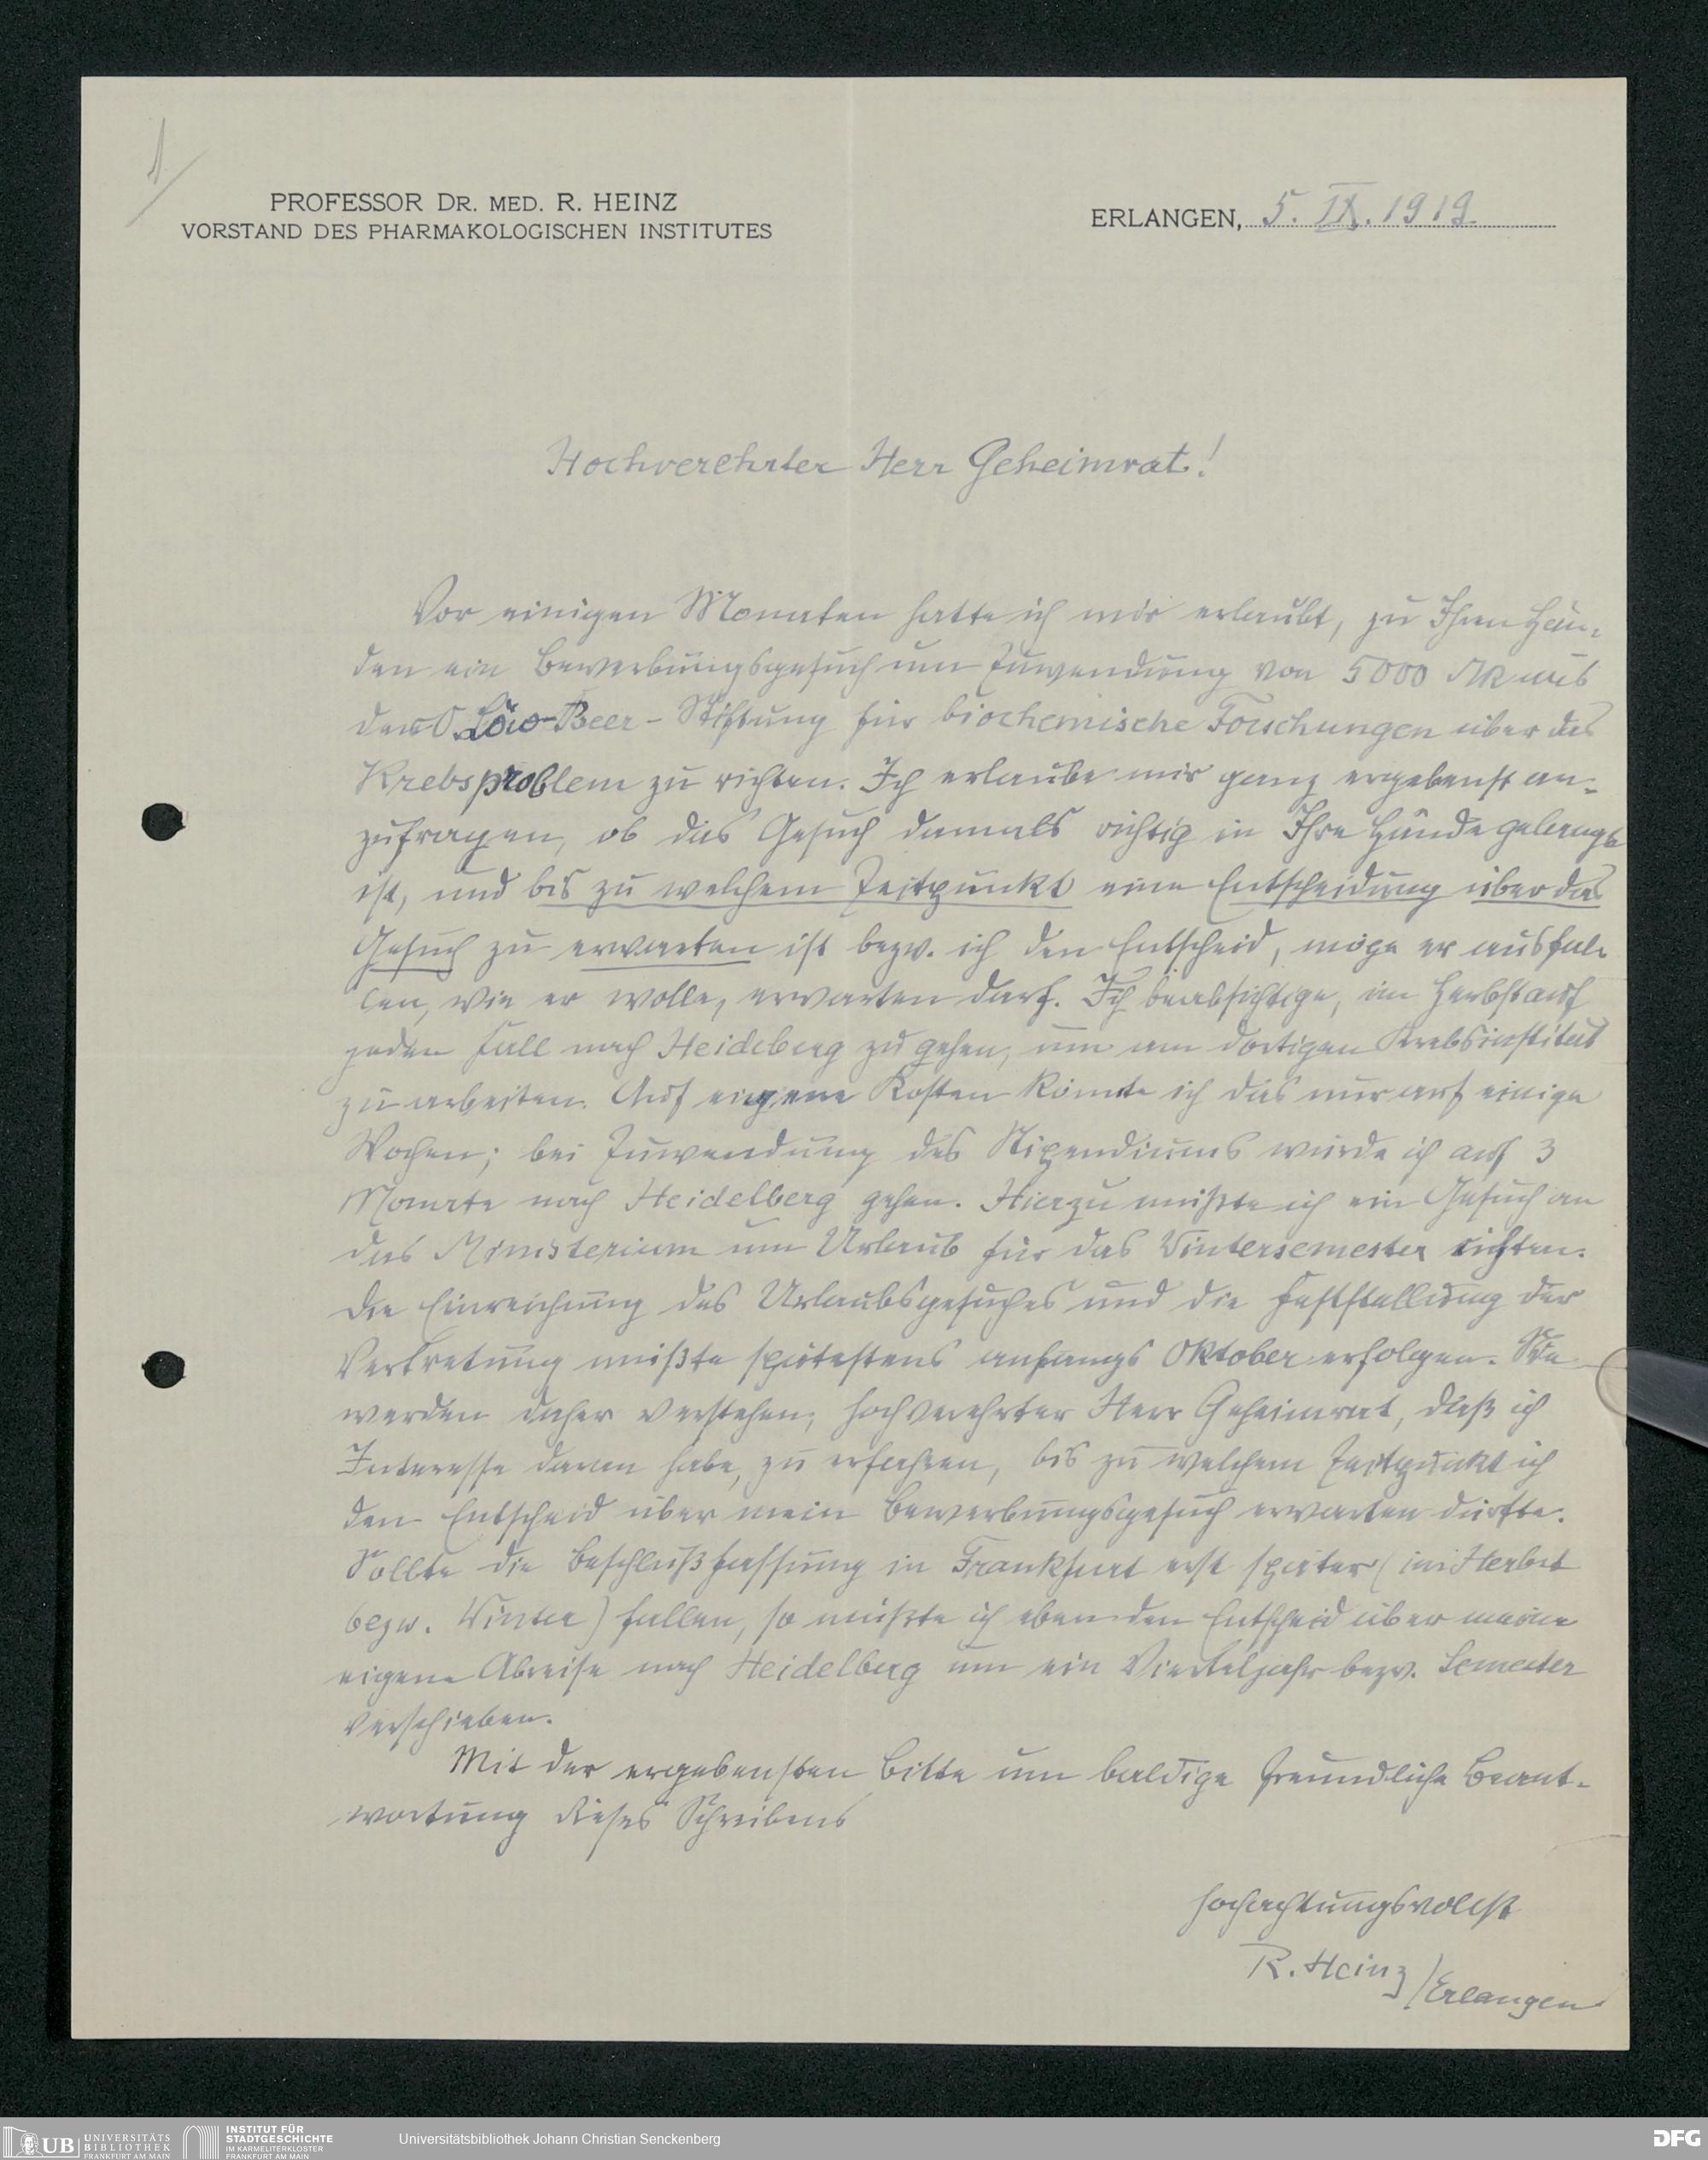 1
PROFESSOR DR. MED. R. HEINZ
VORSTAND DES PHARMAKOLOGISCHEN INSTITUTES
ERLANGEN, 5. IX. 1919.
Hochverehrter Herr Geheimrat!
Vor einigen Monaten hatte ich mir erlaubt, zu Ihren Hän-
den ein Bewerbungsgesuch um Zuwendung von 5000 Mk aus
der Löw-Beer-Stiftung für biochemische Forschungen über das
Krebsproblem zu richten. Ich erlaube mir ganz ergebenst an-
zufragen, ob das Gesuch damals richtig in Ihre Hände gelangt
ist, und bis zu welchem Zeitpunkt eine Entscheidung über das
Gesuch zu erwarten ist bezw. ich den Entscheid, möge er ausfal-
len, wie er wolle, erwarten darf. Ich beabsichtige, im Herbst auf
jeden Fall nach Heidelberg zu gehen, um am dortigen Krebsinstitut
zu arbeiten. Auf eigene Kosten könnte ich das nur auf einige
Wochen; bei Zuwendung des Stipendiums würde ich auf 3
Monate nach Heidelberg gehen. Hierzu müßte ich ein Gesuch an
das Ministerium um Urlaub für das Wintersemester richten.
Die Einreichung des Urlaubsgesuches und die Feststellung der
Vertretung müßte spätestens anfangs Oktober erfolgen. Sie
werden daher verstehen, hochverehrter Herr Geheimrat, daß ich
Interesse daran habe, zu erfahren, bis zu welchem Zeitpunkt ich
den Entscheid über mein Bewerbungsgesuch erwarten dürfte.
Sollte die Beschlußfassung in Frankfurt erst später (im Herbst
bezw. Winter) fallen, so müßte ich eben den Entscheid über meine
eigene Abreise nach Heidelberg um ein Vierteljahr bezw. Semester
verschieben.
Mit der ergebensten Bitte um baldige freundliche Beant-
wortung dieses Schreibens
hochachtungsvollst
R. Heinz/Erlangen
UB UNIVERSITÄTS
BIBLIOTHEK
FRANKFURT AM MAIN
INSTITUT FÜR
STADTGESCHICHTE
IM KARMELITERKLOSTER
FRANKFURT AM MAIN
Universitätsbibliothek Johann Christian Senckenberg
DFG